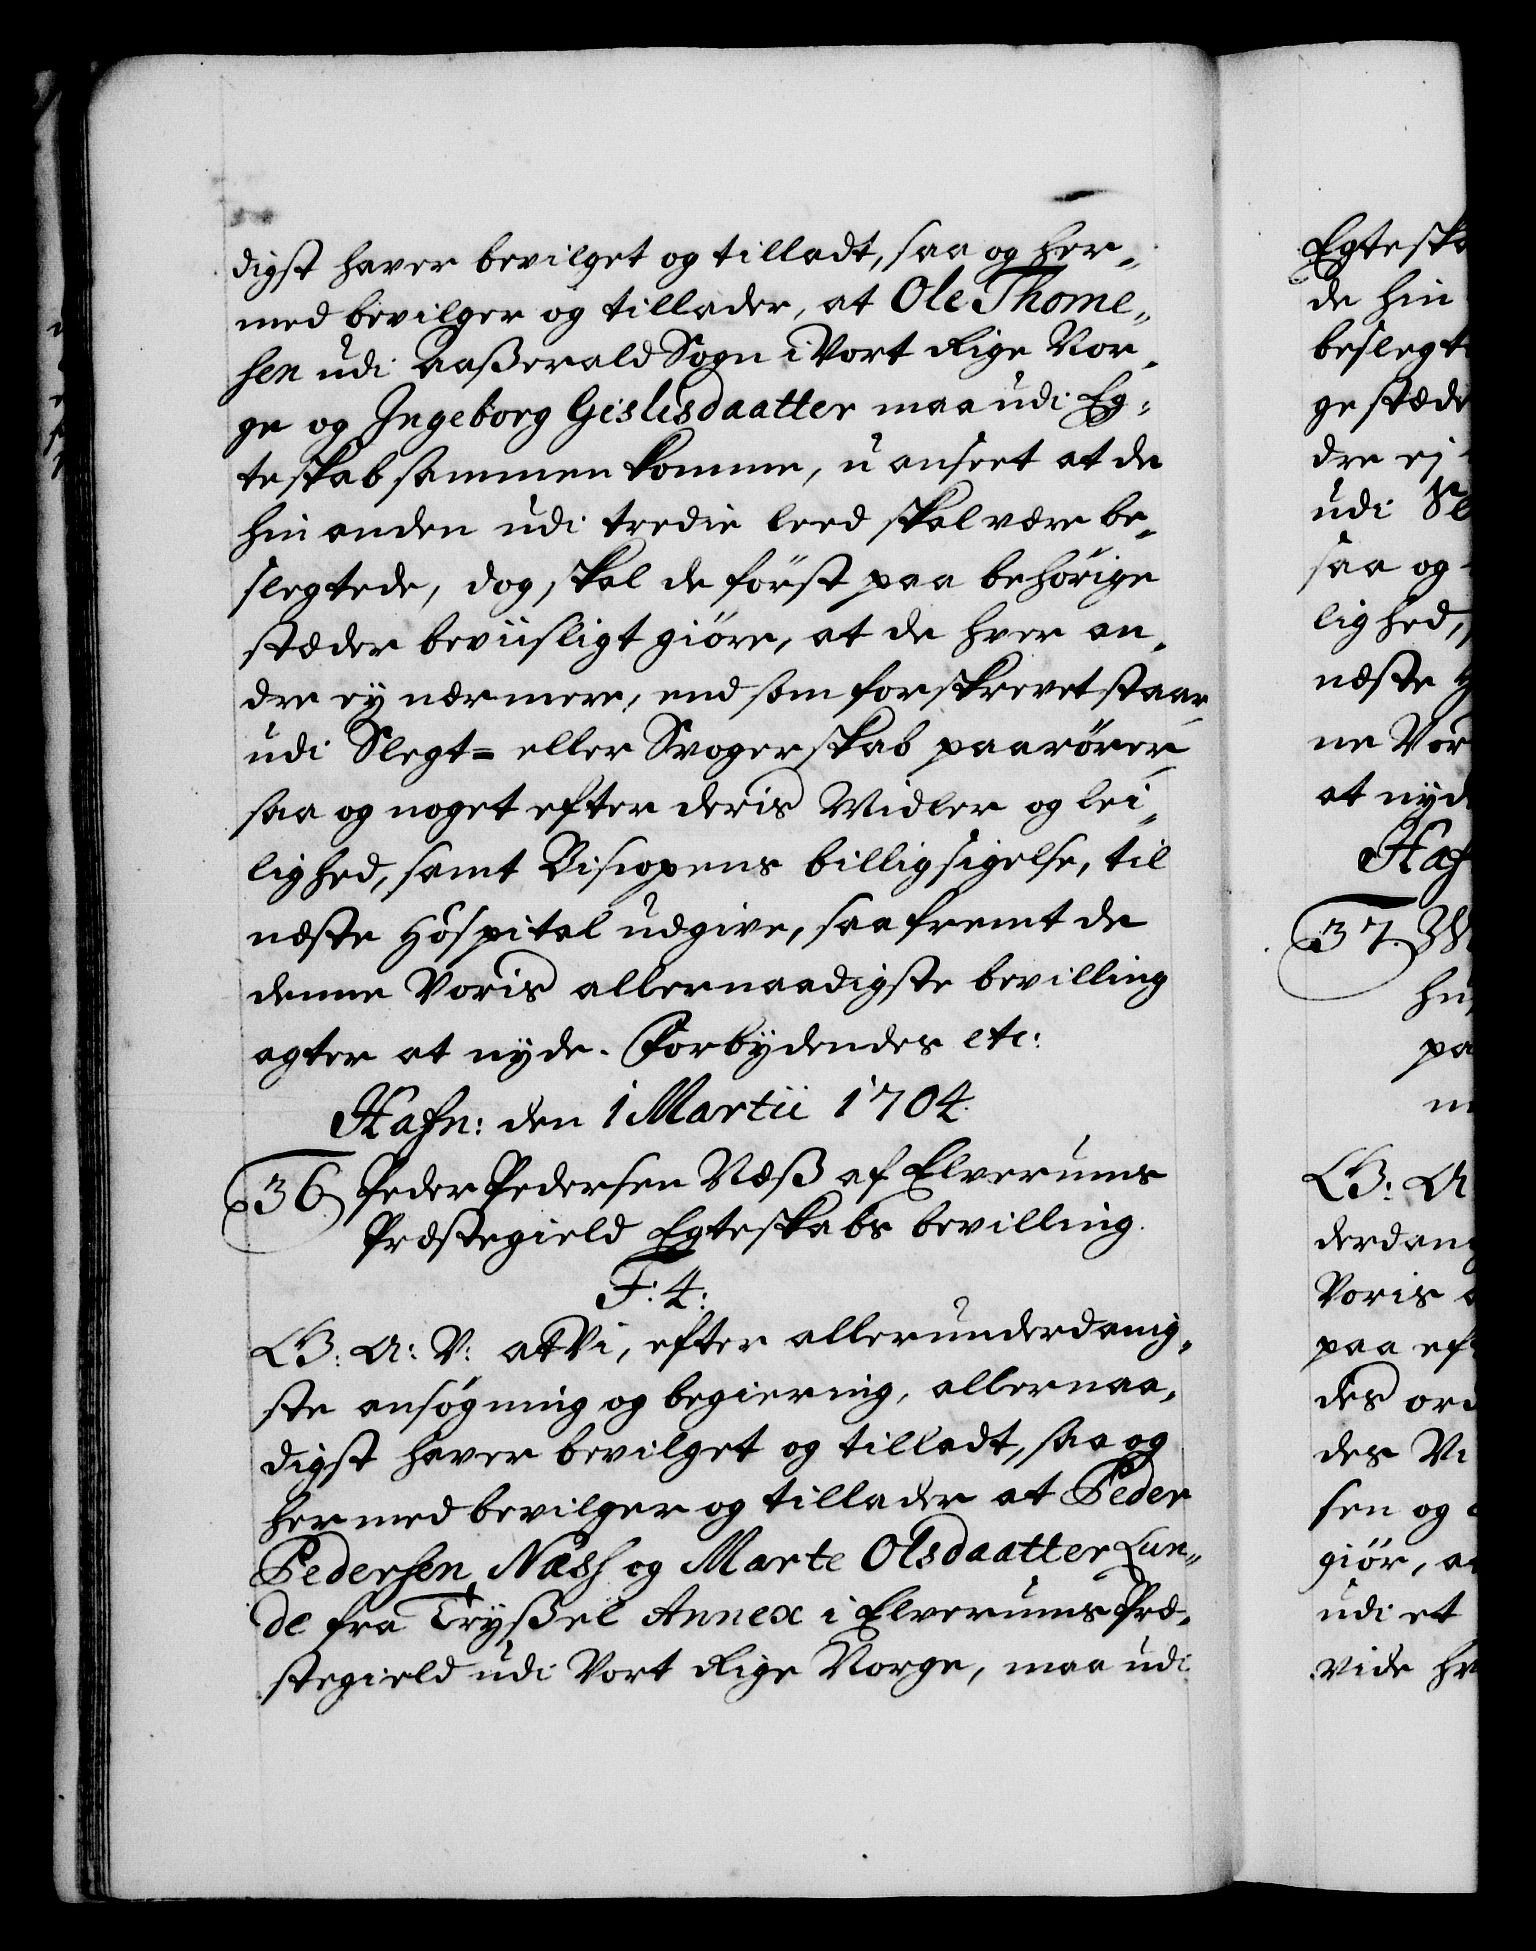 digst haver bevilget og tilladt, saa og her-
med bevilger og tillader, at Ole Thome-
sen udi Aaßerald Sogn i Vort Rige Nor-
ge og Jngeborg Gislisdaatter maa udi Eg-
teskab sammen komme, uanseet at de
hinanden udi tredie leed skal være be-
slegtede, dog, skal de först paa behörige
stæder beviisligt giöre, at de hver an-
dre ey nærmere, end som forskrevet staar,
udi Slegt= eller Svogerskab paarörer,
saa og noget efter deris Midler og lei-
lighed, samt Biscopens billigsigelse, til
næste Hospital udgive, saafremt de
denne Voris allernaadigste bevilling
agter at nyde. Forbydendes etc:
Hafn: den 1 Martii 1704.
36. Peder Pedersen Næß af Elverums
Præstegield Egteskabs bevilling.
F: 4:
G: A: V: at Vi, efter allerunderdanig-
ste ansögning og begiering, allernaa-
digst haver bevilget og tilladt, saa og
hermed bevilger og tillader at Peder
Pedersen Næss og Marte Olsdaatter Lun-
de fra Tryßel Annex i Elverums Præ-
stegield udi Vort Rige Norge, maa udi
Egteska
de hin
beslegt
ge stæde
dre ej
udi Sl
saa og
lighed,
næste H
ne Vor
at nyd
Haf
37.
pa
G: A
derdan
Voris a
paa ef
des ord
des Vi
sen og
giör, a
udi et
vide